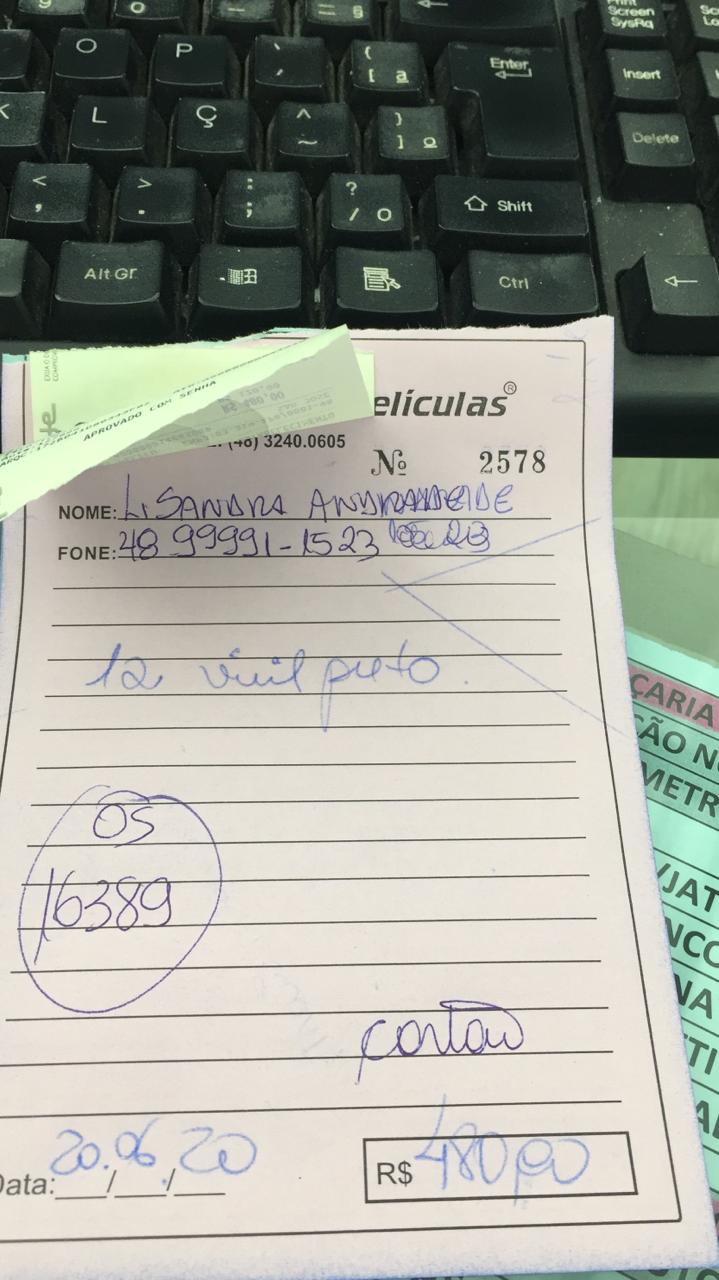 O P
{ [ ª
Enter
Print Screen SysRq
Insert
Delete
K L Ç ^ ~ } ] º
< , > . : ; ? / O Shift
Alt Gr Ctrl
APROVADO COM SENHA
elículas®
(48) 3240.0605
Nº 2578
NOME: LISANDRA
FONE: 48 99991-1523
12 vinil preto.
OS
16389
cartão
Data: 20.06.20
R$ 480,00
ÇARIA
ÇÃO N
METR
/JAT
NCO
NA
TI